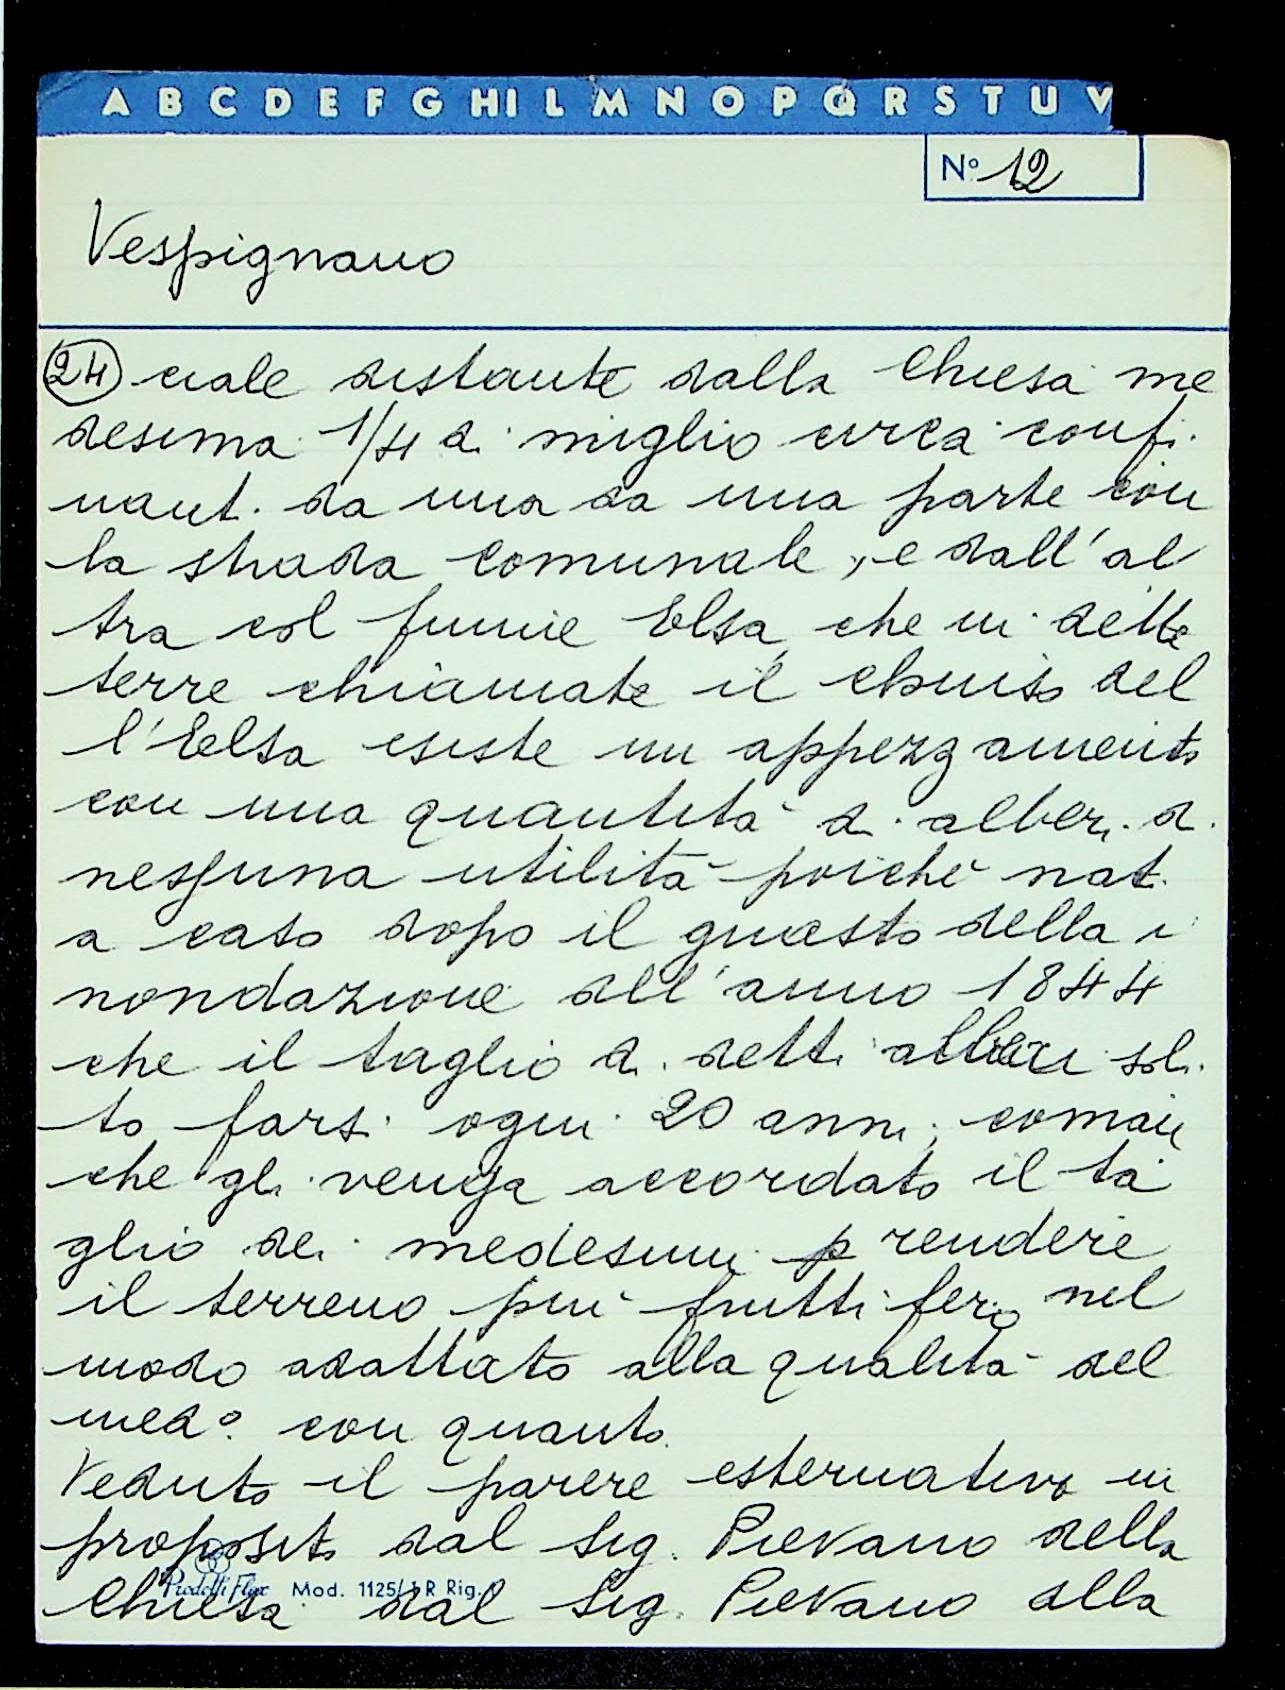 A B C D E F G HI L M N O P Q R S T U V
N° 12
Vespignano
24 ciale distante dalla Chiesa me
desima 1/4 di miglio circa confi
nant. da una da una parte con
la strada comunale, e dall'al
tra col fiume Elsa, che in dette
terre chiamate il del
l'Elsa esiste un appezzamento
con una quantità di alberi di
nessuna utilità poiché nati
a caso dopo il guasto della i
nondazione dell'anno 1844
che il taglio di detti alberi soli
to farsi ogni 20 anni,
che gli venga accordato il ta
glio dei medesimi p rendere
il terreno più fruttifero nel
modo adattato alla qualità del
med° con quanto
Veduto il parere esternativo in
proposito dal Sig. Pievano della
Chiesa dal Sig. Pievano alla
Prodotti Flex Mod. 1125/1 R Rig.